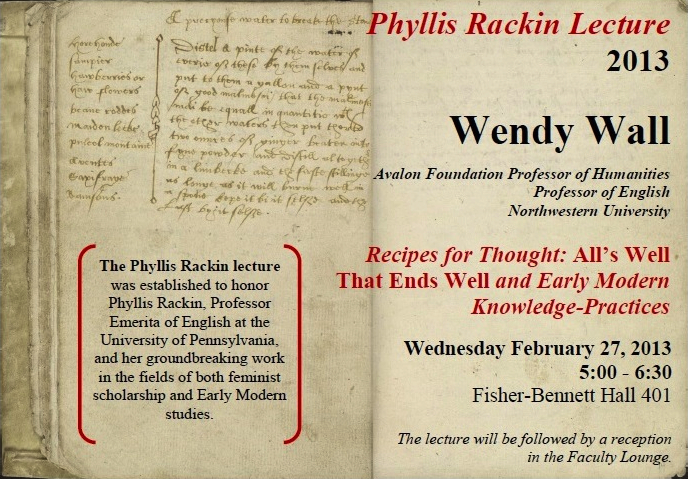 A pretious water to breake the
Phyllis Rackin Lecture
2013
Horehounde
sampier
hawberries or
haw flowers
beane coddes
maidenheare
Distel a pinte of the water of
everie of these by them selves and
put to them a gallon and a pynt
of good malmsey, that the malmsey
may be equall in quantitie with
the other waters then put therto
two ounces of ginger beaten into
fyne powder and distill altogether
in a limbecke and the same stillinge
as longe as it will burne well in
Wendy Wall
Avalon Foundation Professor of Humanities
Professor of English
Northwestern University
Recipes for Thought: All’s Well
That Ends Well and Early Modern
Knowledge-Practices
Wednesday February 27, 2013
5:00 - 6:30
Fisher-Bennett Hall 401
The lecture will be followed by a reception
in the Faculty Lounge.
The Phyllis Rackin lecture
was established to honor
Phyllis Rackin, Professor
Emerita of English at the
University of Pennsylvania,
and her groundbreaking work
in the fields of both feminist
scholarship and Early Modern
studies.